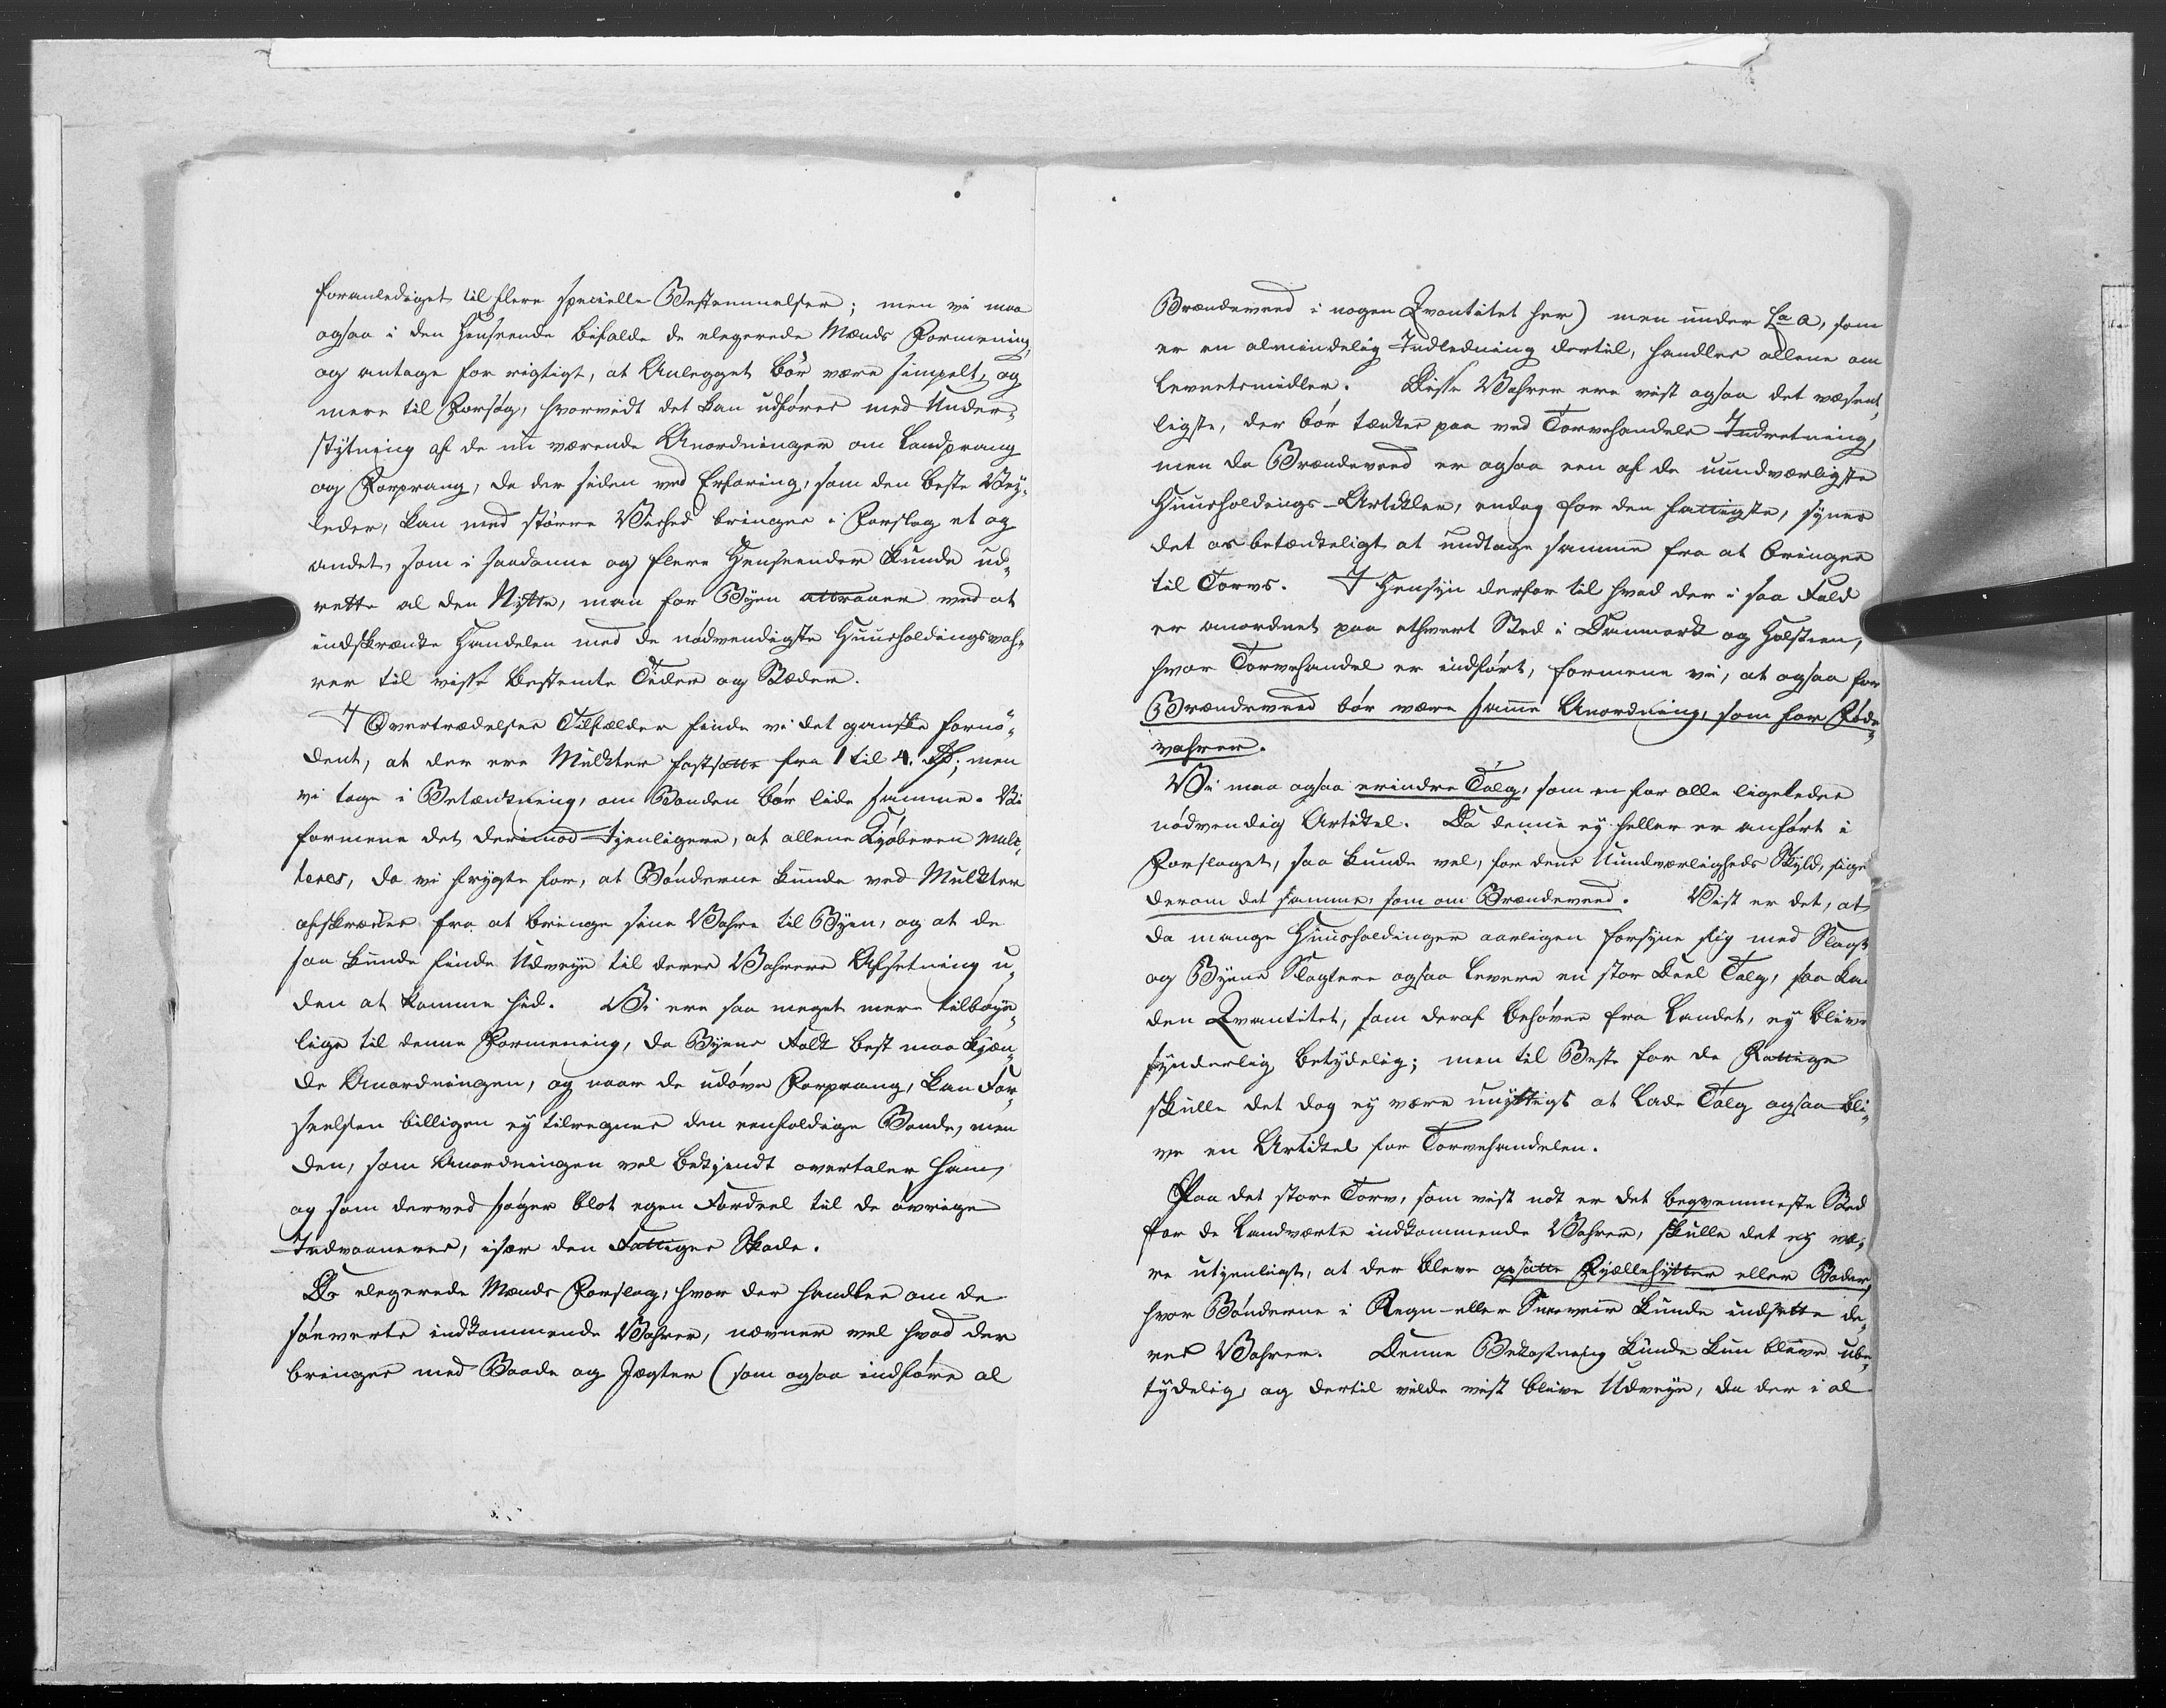 foranlediget til flere specielle Bestemmelser; men vi maa
ogsaa i den Henseende bifalde de elegerede Mænds Formening,
og antage for rigtigt, at Anlegget bør være simpelt, og
mere til Forsøg, hvorvidt det kan udføres med Under-
støtning af de nu værende Anordninger om Landprang
og Forprang, da der siden ved Erfaring, som den beste Vey-
leder, kan med større Vished bringes i Forslag et og
andet, som i saadanne og flere Henseender kunde ud-
rette al den Nytte, man for Byen attraaer ved at
indskrænke Handelen med de nødvendigste Huusholdingsvah-
rer til visse bestemte Tider og Stæder.
I Overtrædelses Tilfælder finde vi det ganske fornö-
dent, at der ere Mulkter fastsatte fra 1 til 4 Rd; men
vi tage i Betænkning, om Bonden bør lide samme. Vi
formene det derimod tjenligere, at allene Kjøberen mulc-
teres, da vi frygte for, at Bønderne kunde ved Mulkter
afskrækkes fra at bringe sine Vahre til Byen, og at de
saa kunde finde Udveye til deres Vahrers Afsetning u-
den at komme hid. Vi ere saa meget mere tilbøye-
lige til denne Formening, da Byens Folk best maa kjen-
de Anordningen, og naar de udøve Forprang, kan For-
seelsen billigen ey tilregnes den eenfoldige Bonde, men
den, som Anordningen vel bekjendt overtaler ham,
og som derved søger blot egen Fordeel til de øvrige
Indvaaneres, især den Fattiges Skade.
De elegerede Mænds Forslag, hvor der handles om de
søeverts indkommende Vahrer, nævner vel hvad der
bringes med Baade og Jægter (som ogsaa indføre al
Brændeveed i nogen Qvantitet her) men under La a, som
er en almindelig Indledning dertil, handles allene om
Levnetsmidler. Disse Vahrer ere vist ogsaa det væsent-
ligste, der bør tænkes paa ved Torvehandels Indretning,
men da Brændeveed er ogsaa een af de uundværligste
Huusholdings-Artikler, endog for den fattigste, synes
det os betænkeligt at undtage samme fra at bringes
til Torvs. I Hensyn derfor til hvad der i saa Fald
er anordnet paa ethvert Sted i Danmark og Holsteen,
hvor Torvehandel er indført, formene vi, at ogsaa for
Brændeveed bør være samme Anordning, som for Føde-
vahrer.
Vi maa ogsaa erindre Talg, som en for alle ligeledes
nødvendig Artikel. Da denne ey heller er anført i
Forslaget, saa kunde vel, for dens Uundværligheds Skyld, siges
derom det samme, som om Brændeveed. Vist er det, at
da mange Huusholdinger aarligen forsyne sig med Slagt
og Byens Slagtere ogsaa levere en stor Deel Talg, saa kan
den Qvantitet, som deraf behøves fra Landet, ey blive
synderlig betydelig; men til Beste for de Fattige
skulle det dog ey være unyttigt at lade Talg ogsaa bli-
ve en Artikel for Torvehandelen.
Paa det store Torv, som vist nok er det beqvemmeste Sted
for de Landværts indkommende Vahrer, skulle det ey væ-
re utjenligt, at der bleve opsatte Fjællehytter eller Boder,
hvor Bønderne i Regn- eller Sneeveir kunde indsette de-
res Vahrer. Denne Bekostning kunde kun blive ube-
tydelig, og dertil vilde vist blive Udveye, da der i al